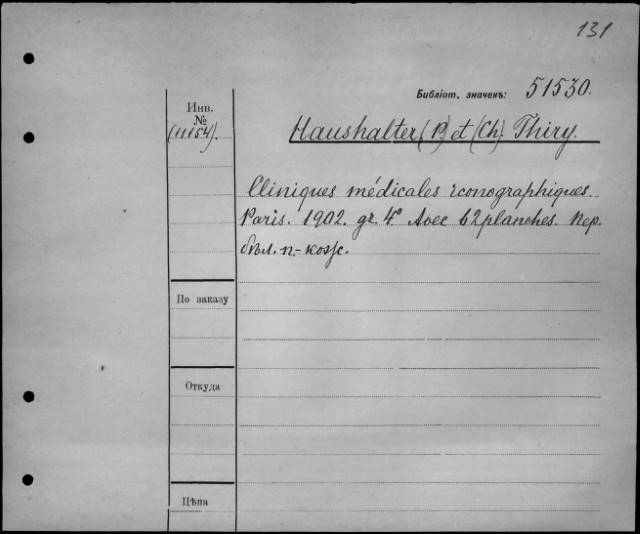 131
Библіот. значекъ: 51530.
Инв.
№
(11154).
Haushalter (P) et (Ch) Thiry.
Cliniques médicales iconographiques.
Paris. 1902. gr. 4º Avec 62 planches. Пер.
бѣл. п.-кож.
По заказу
Откуда
Цѣна